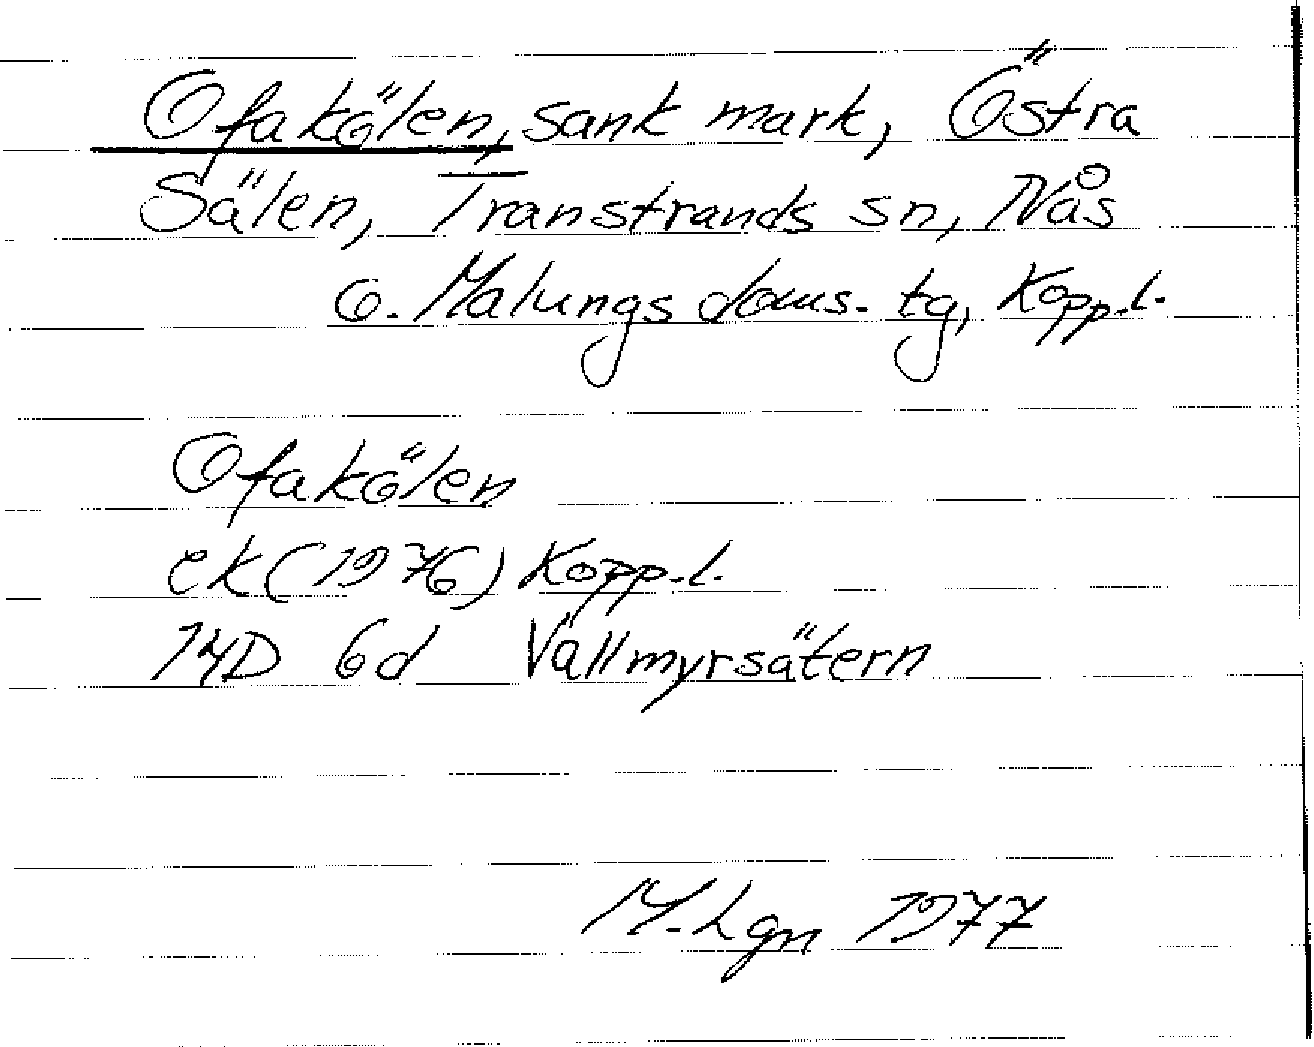 Ofakölen, sank mark, Östra
Sälen, Transtrands sn, Nås
o. Malungs doms. tg, Kopp.l.
Ofakölen
ek (1976) Kopp.l.
14D 6d Vallmyrsätern
M. Lgn 1977